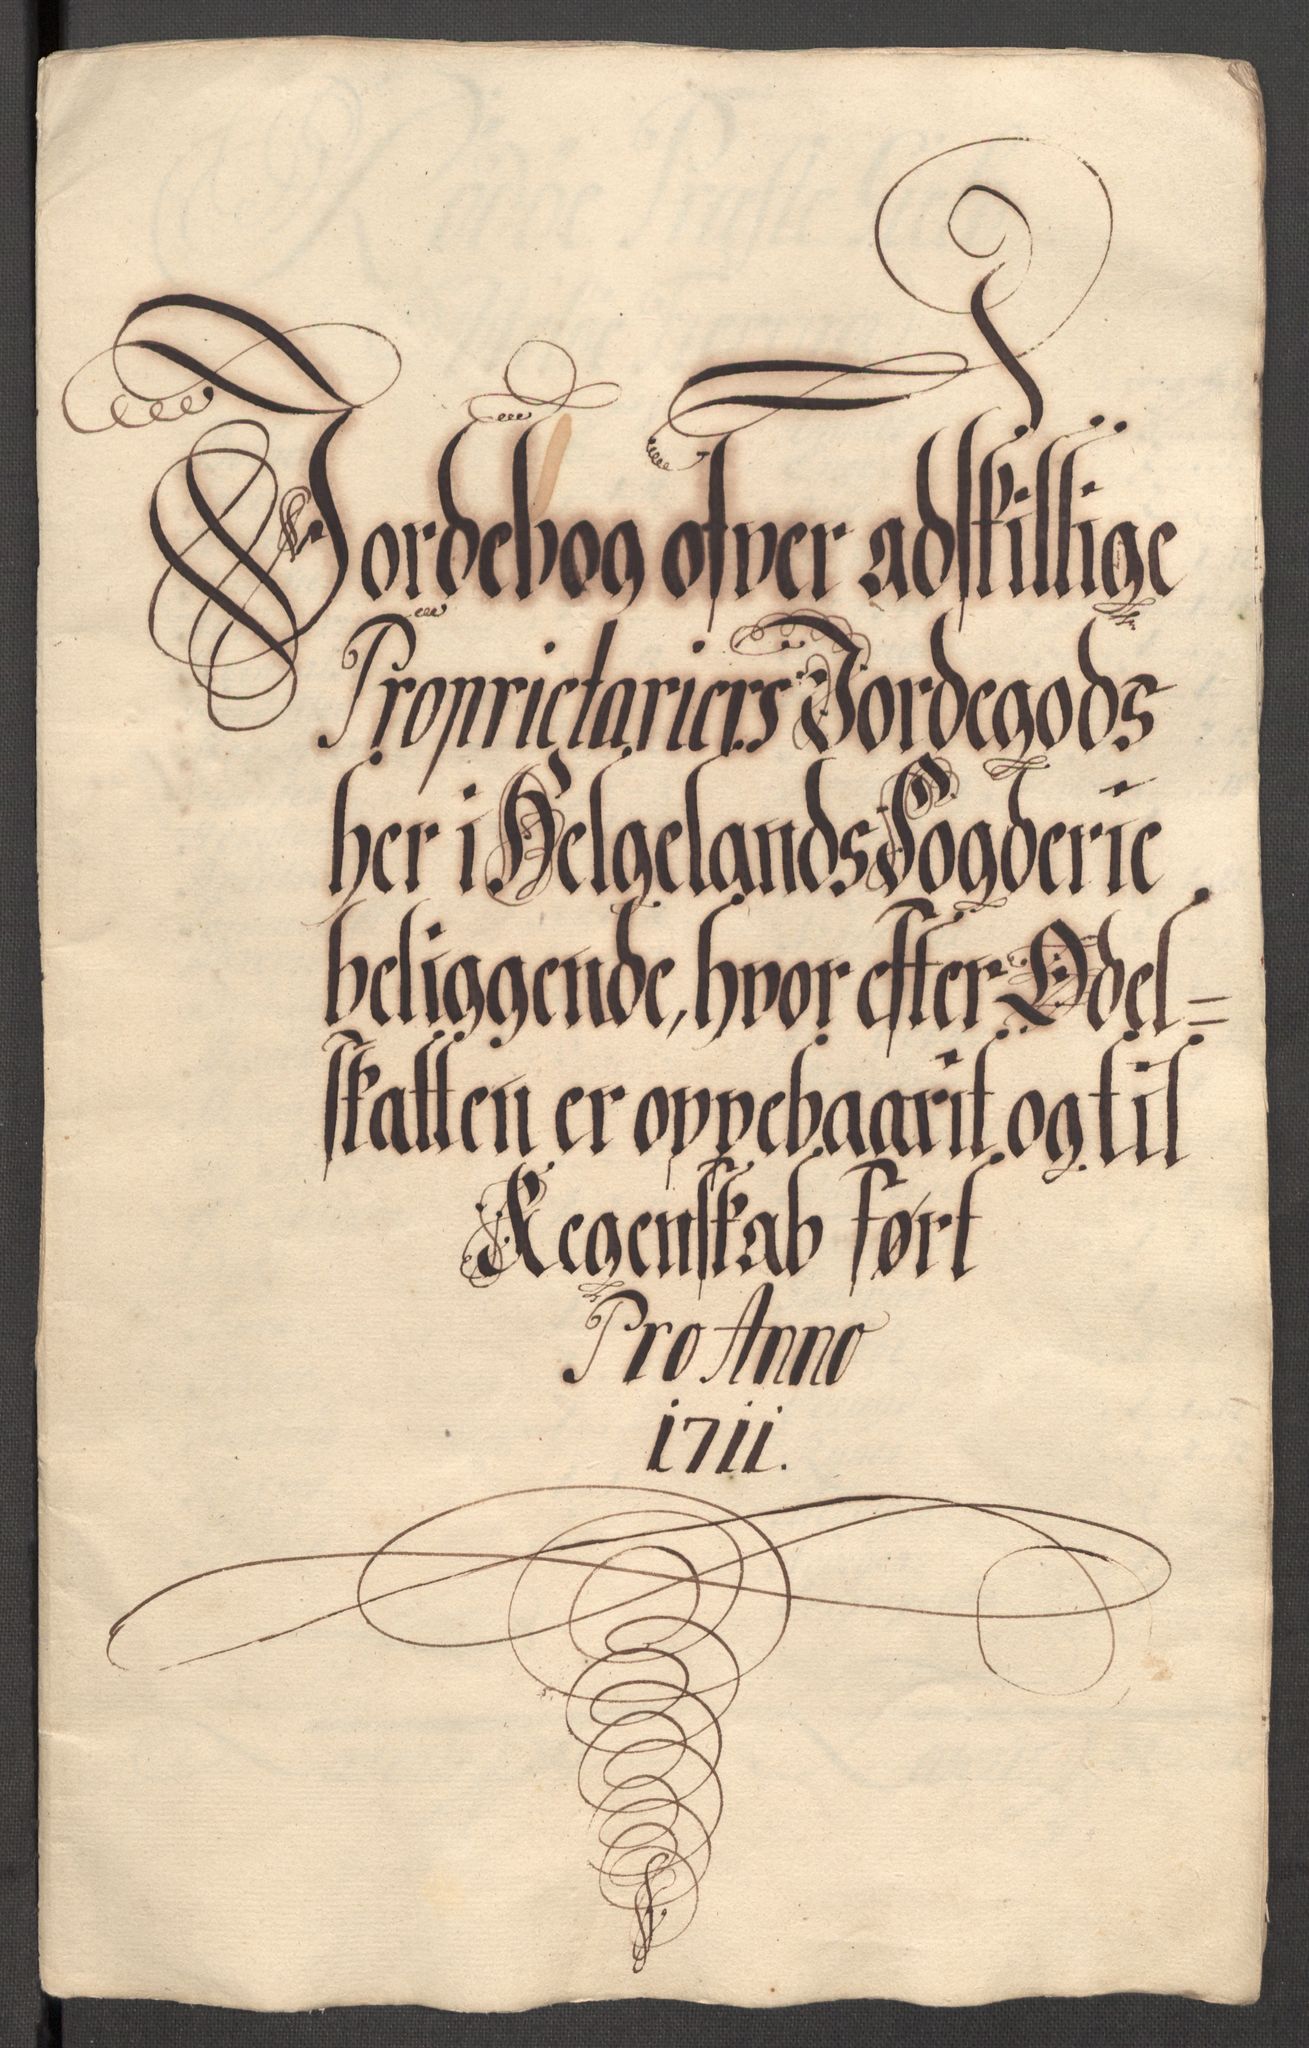 Jordebog ofver adskillige
Proprietariers Jordegods
her i Helgelands Fogderie
beliggende, hvor efter Odel=
skatten er oppebaarit og til
Regenskab ført
Pro Anno
1711.